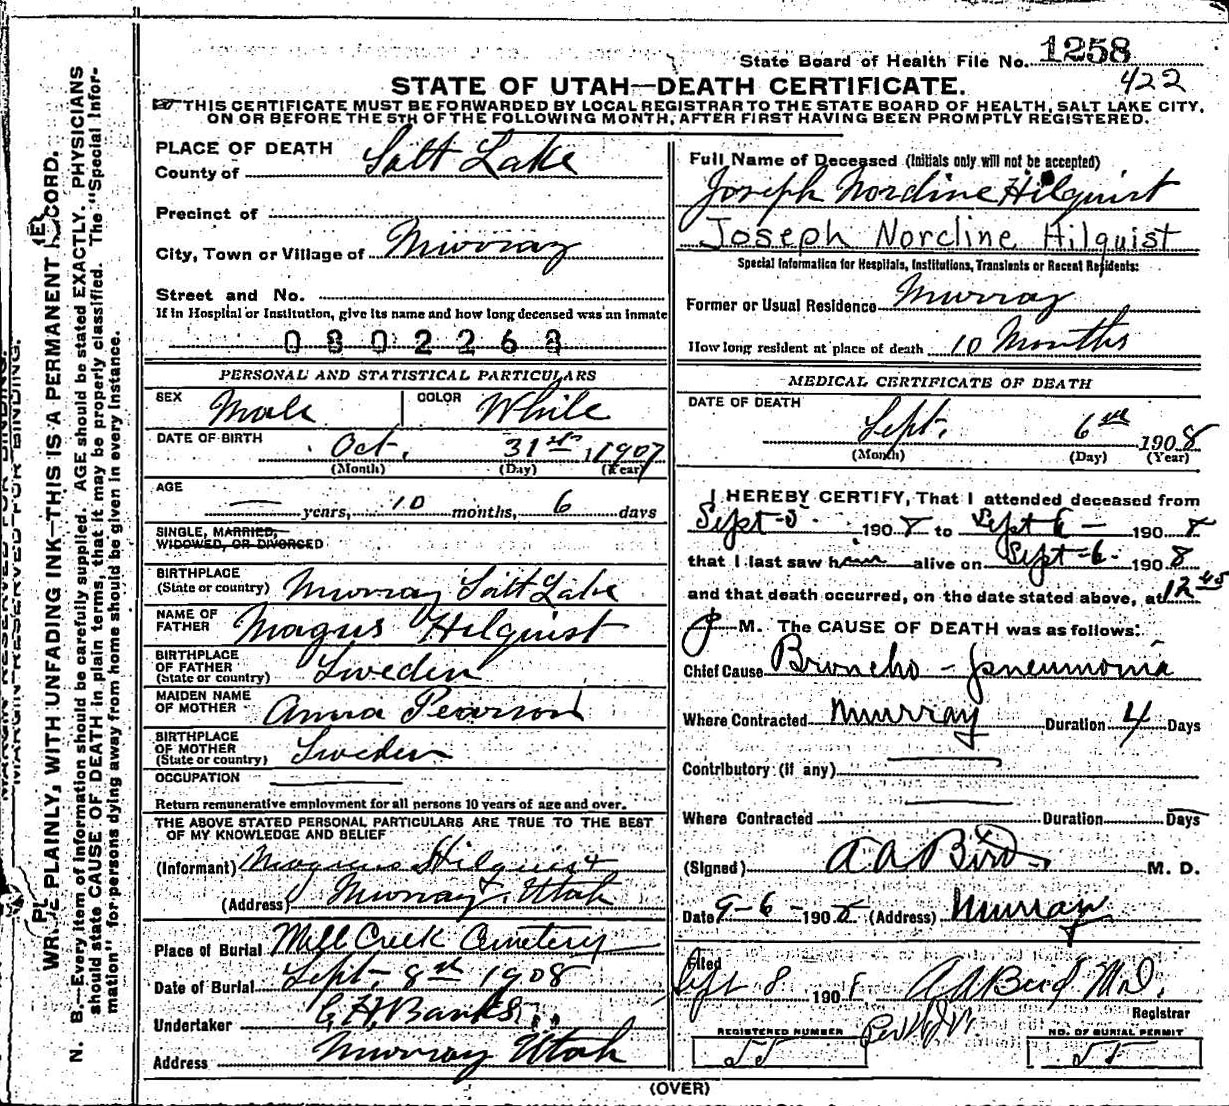 State Board of Health File No. 1258
422
STATE OF UTAH—DEATH CERTIFICATE.
THIS CERTIFICATE MUST BE FORWARDED BY LOCAL REGISTRAR TO THE STATE BOARD OF HEALTH, SALT LAKE CITY,
ON OR BEFORE THE 5TH OF THE FOLLOWING MONTH, AFTER FIRST HAVING BEEN PROMPTLY REGISTERED.
PLACE OF DEATH
County of Salt Lake
Precinct of
City, Town or Village of Murray
Street and No.
If in Hospital or Institution, give its name and how long deceased was an inmate
0302268
PERSONAL AND STATISTICAL PARTICULARS
SEX Male COLOR White
DATE OF BIRTH Oct. 31st, 1907
(Month) (Day) (Year)
AGE
— years, 10 months, 6 days
SINGLE, MARRIED,
WIDOWED, OR DIVORCED
BIRTHPLACE
(State or country) Murray Salt Lake
NAME OF
FATHER Magus Hilquist
BIRTHPLACE
OF FATHER
(State or country) Sweden
MAIDEN NAME
OF MOTHER Anna Pearson
BIRTHPLACE
OF MOTHER
(State or country) Sweden
OCCUPATION
Return remunerative employment for all persons 10 years of age and over.
THE ABOVE STATED PERSONAL PARTICULARS ARE TRUE TO THE BEST
OF MY KNOWLEDGE AND BELIEF
(Informant) Magnus Hilquist
(Address) Murray, Utah
Place of Burial Mill Creek Cemetery
Date of Burial Sept. 8th 1908
Undertaker C. H. Banks
Address Murray Utah
Full Name of Deceased (Initials only will not be accepted)
Joseph Nordine Hilquist
Joseph Nordine Hilquist
Special Information for Hospitals, Institutions, Transients or Recent Residents:
Former or Usual Residence Murray
How long resident at place of death 10 Months
MEDICAL CERTIFICATE OF DEATH
DATE OF DEATH
Sept. 6th 1908
(Month) (Day) (Year)
I HEREBY CERTIFY, That I attended deceased from
Sept-5- 1908 to Sept 6- 1908
that I last saw him alive on Sept-6- 1908
and that death occurred, on the date stated above, at 12 45
P M. The CAUSE OF DEATH was as follows:
Chief Cause Broncho-pneumonia
Where Contracted Murray Duration 4 Days
Contributory (if any)
Where Contracted Duration Days
(Signed) A A Bird M. D.
Date 9-6-1908 (Address) Murray
Filed
Sept 8 1908 A A Bird M.D.
Registrar
REGISTERED NUMBER
55
NO. OF BURIAL PERMIT
55
(OVER)
MARGIN RESERVED FOR BINDING.
WRITE PLAINLY, WITH UNFADING INK—THIS IS A PERMANENT RECORD.
N. B.—Every item of information should be carefully supplied. AGE should be stated EXACTLY. PHYSICIANS
should state CAUSE OF DEATH in plain terms, that it may be properly classified. The "Special Infor-
mation" for persons dying away from home should be given in every instance.